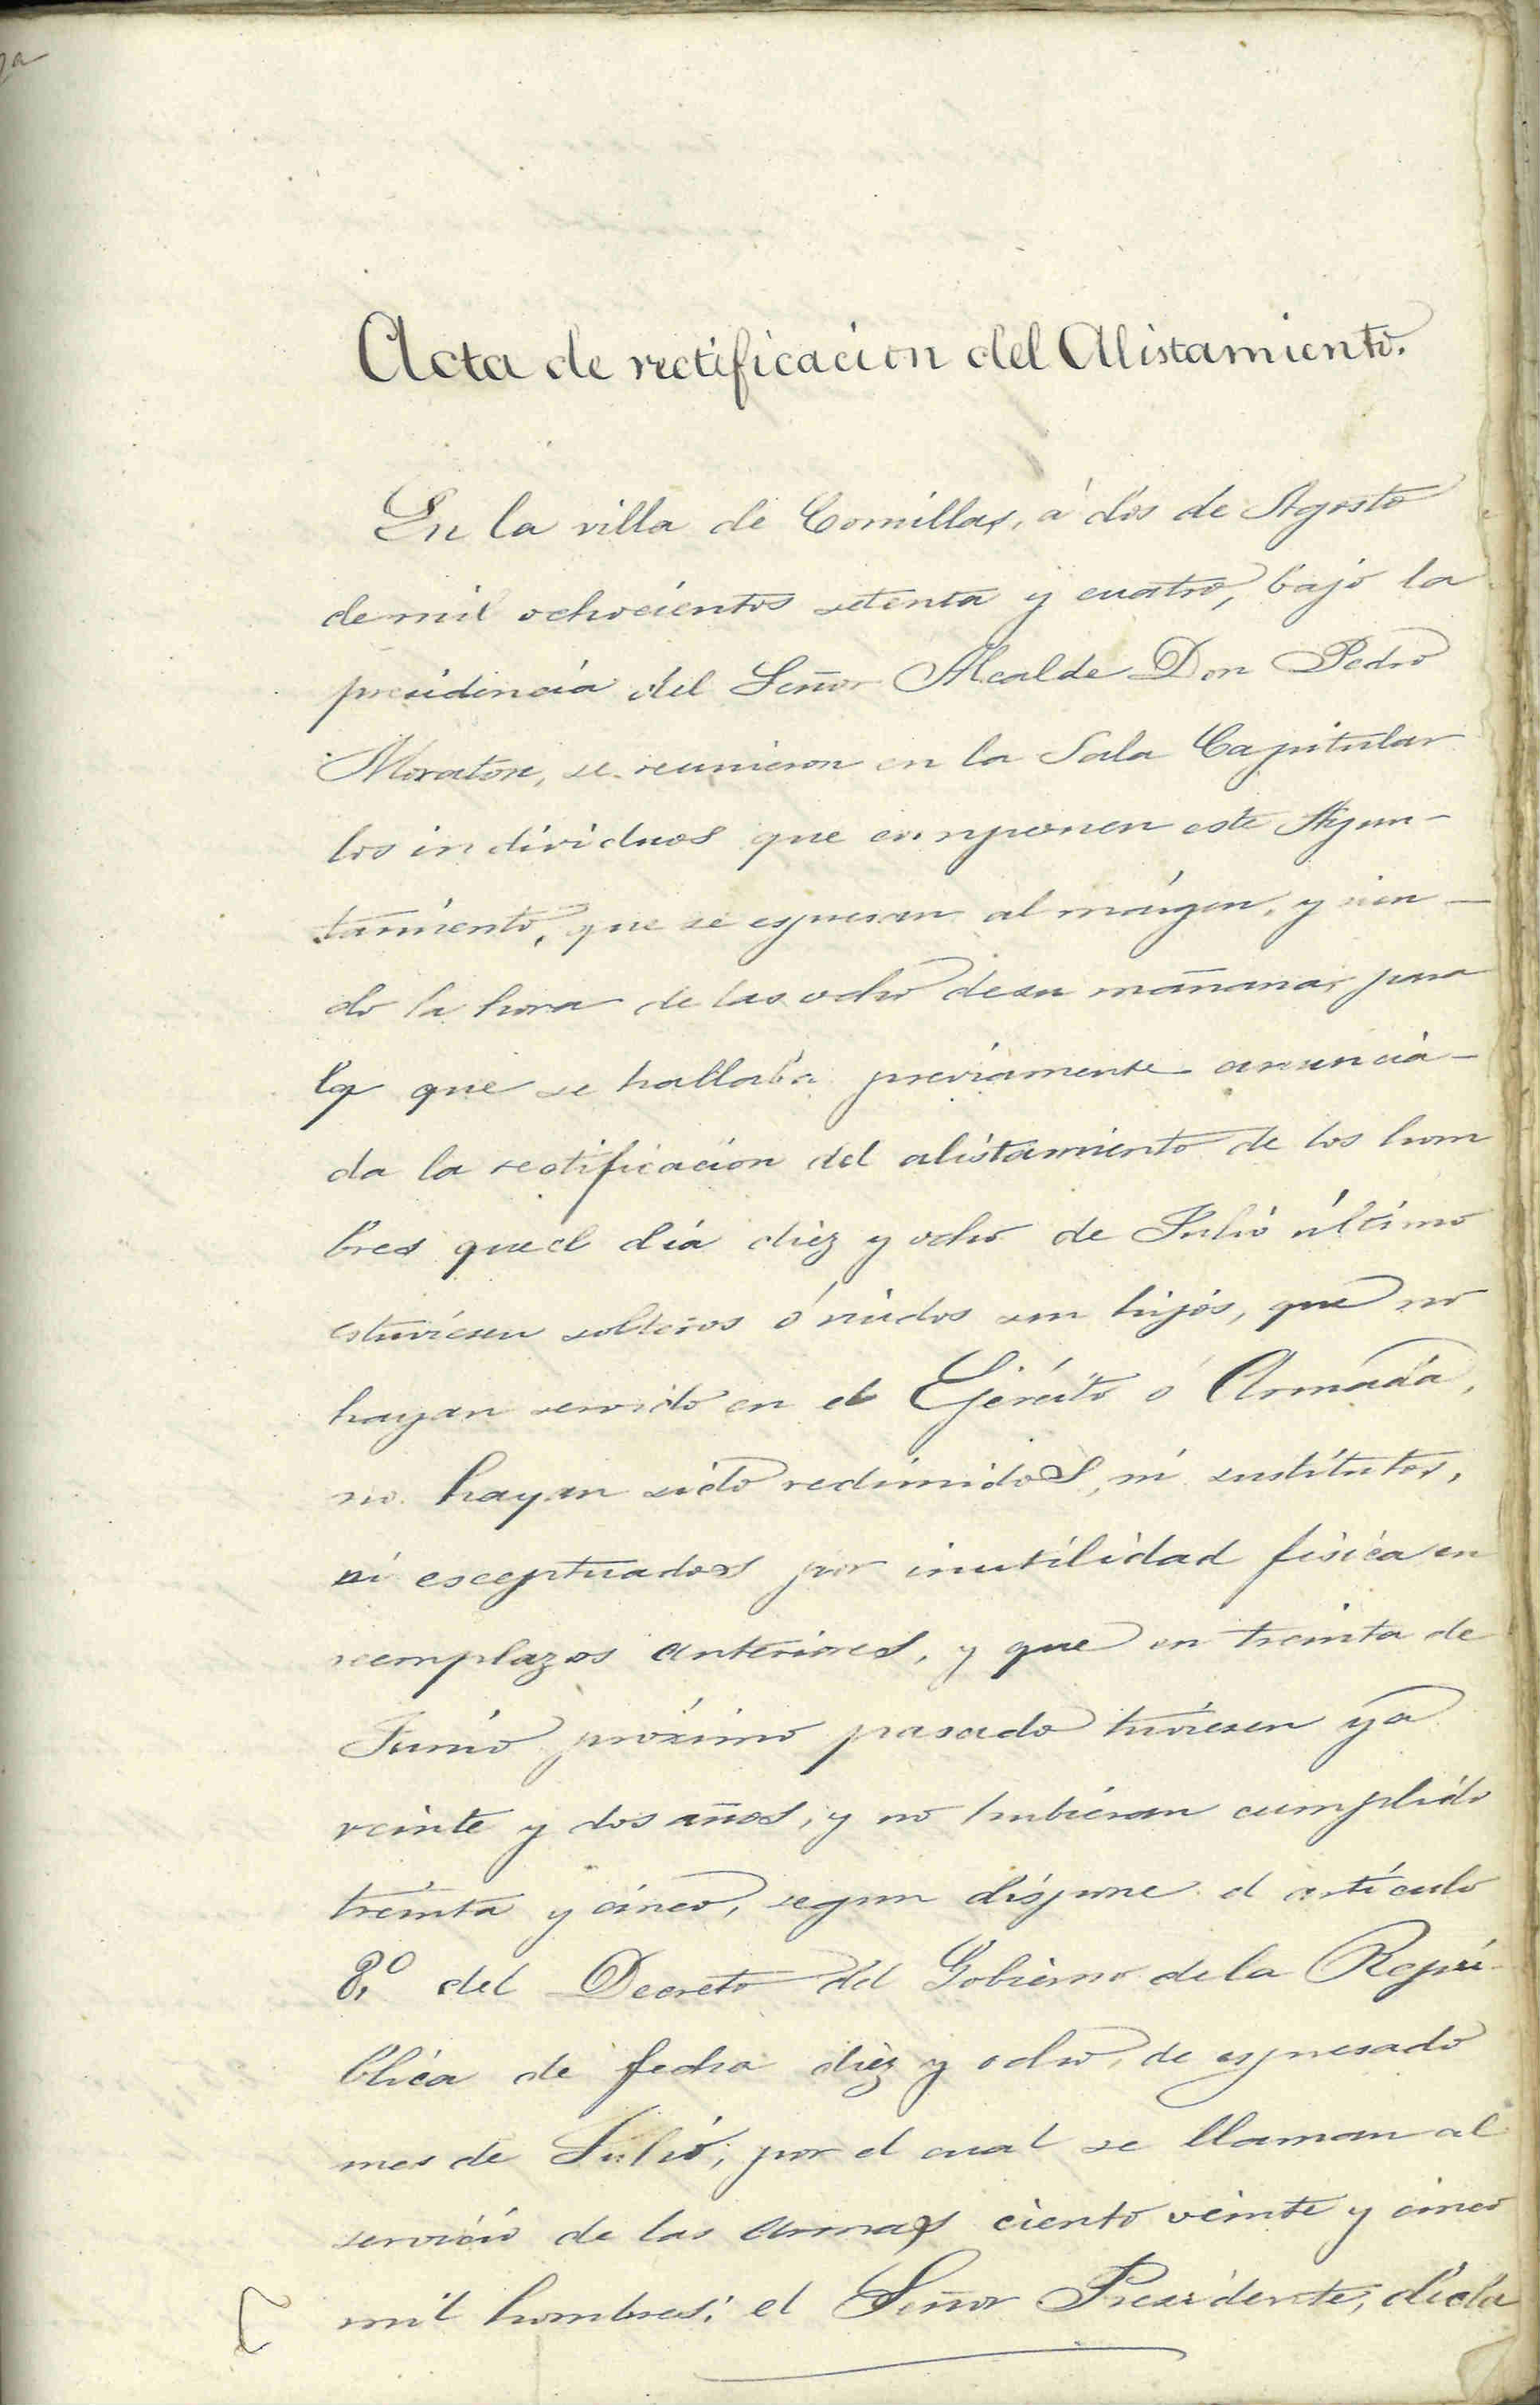 Acta de rectificacion del Alistamiento.
En la villa de Comillas, á dos de Agosto
de mil ochocientos setenta y cuatro, bajo la
presidencia del Señor Alcalde Don Pedro
Moraton, se reunieron en la Sala Capitular
los individuos que componen este Ayun-
tamiento, que se espresan al márgen, y sien-
do la hora de las ocho de su mañana, para
la que se hallaba préviamente anuncia-
da la rectificacion del alistamiento de los hom
bres que el dia diez y ocho de Julio último
estuviesen solteros ó viudos sin hijos, que no
hayan servido en el Ejército ó Armada,
no hayan sido redimidos, ni sustitutos,
ni esceptuados por inutilidad fisica en
reemplazos anteriores, y que en treinta de
Junio próximo pasado tuviesen ya
veinte y dos años, y no hubieran cumplido
treinta y cinco, segun dispone el artículo
8.º del Decreto del Gobierno de la Repú-
blica de fecha diez y ocho, de espresado
mes de Julio, por el cual se llaman al
servicio de las armas ciento veinte y cinco
mil hombres; el Señor Presidente, decla